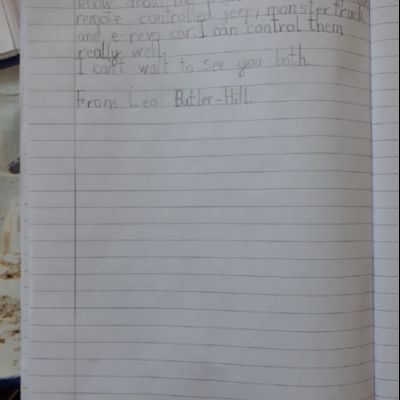 know about the
remote controlled jeep, monster truck
and e-revo car. I can control them
really well.
I can't wait to see you both.
From Leo Butler-Hill.